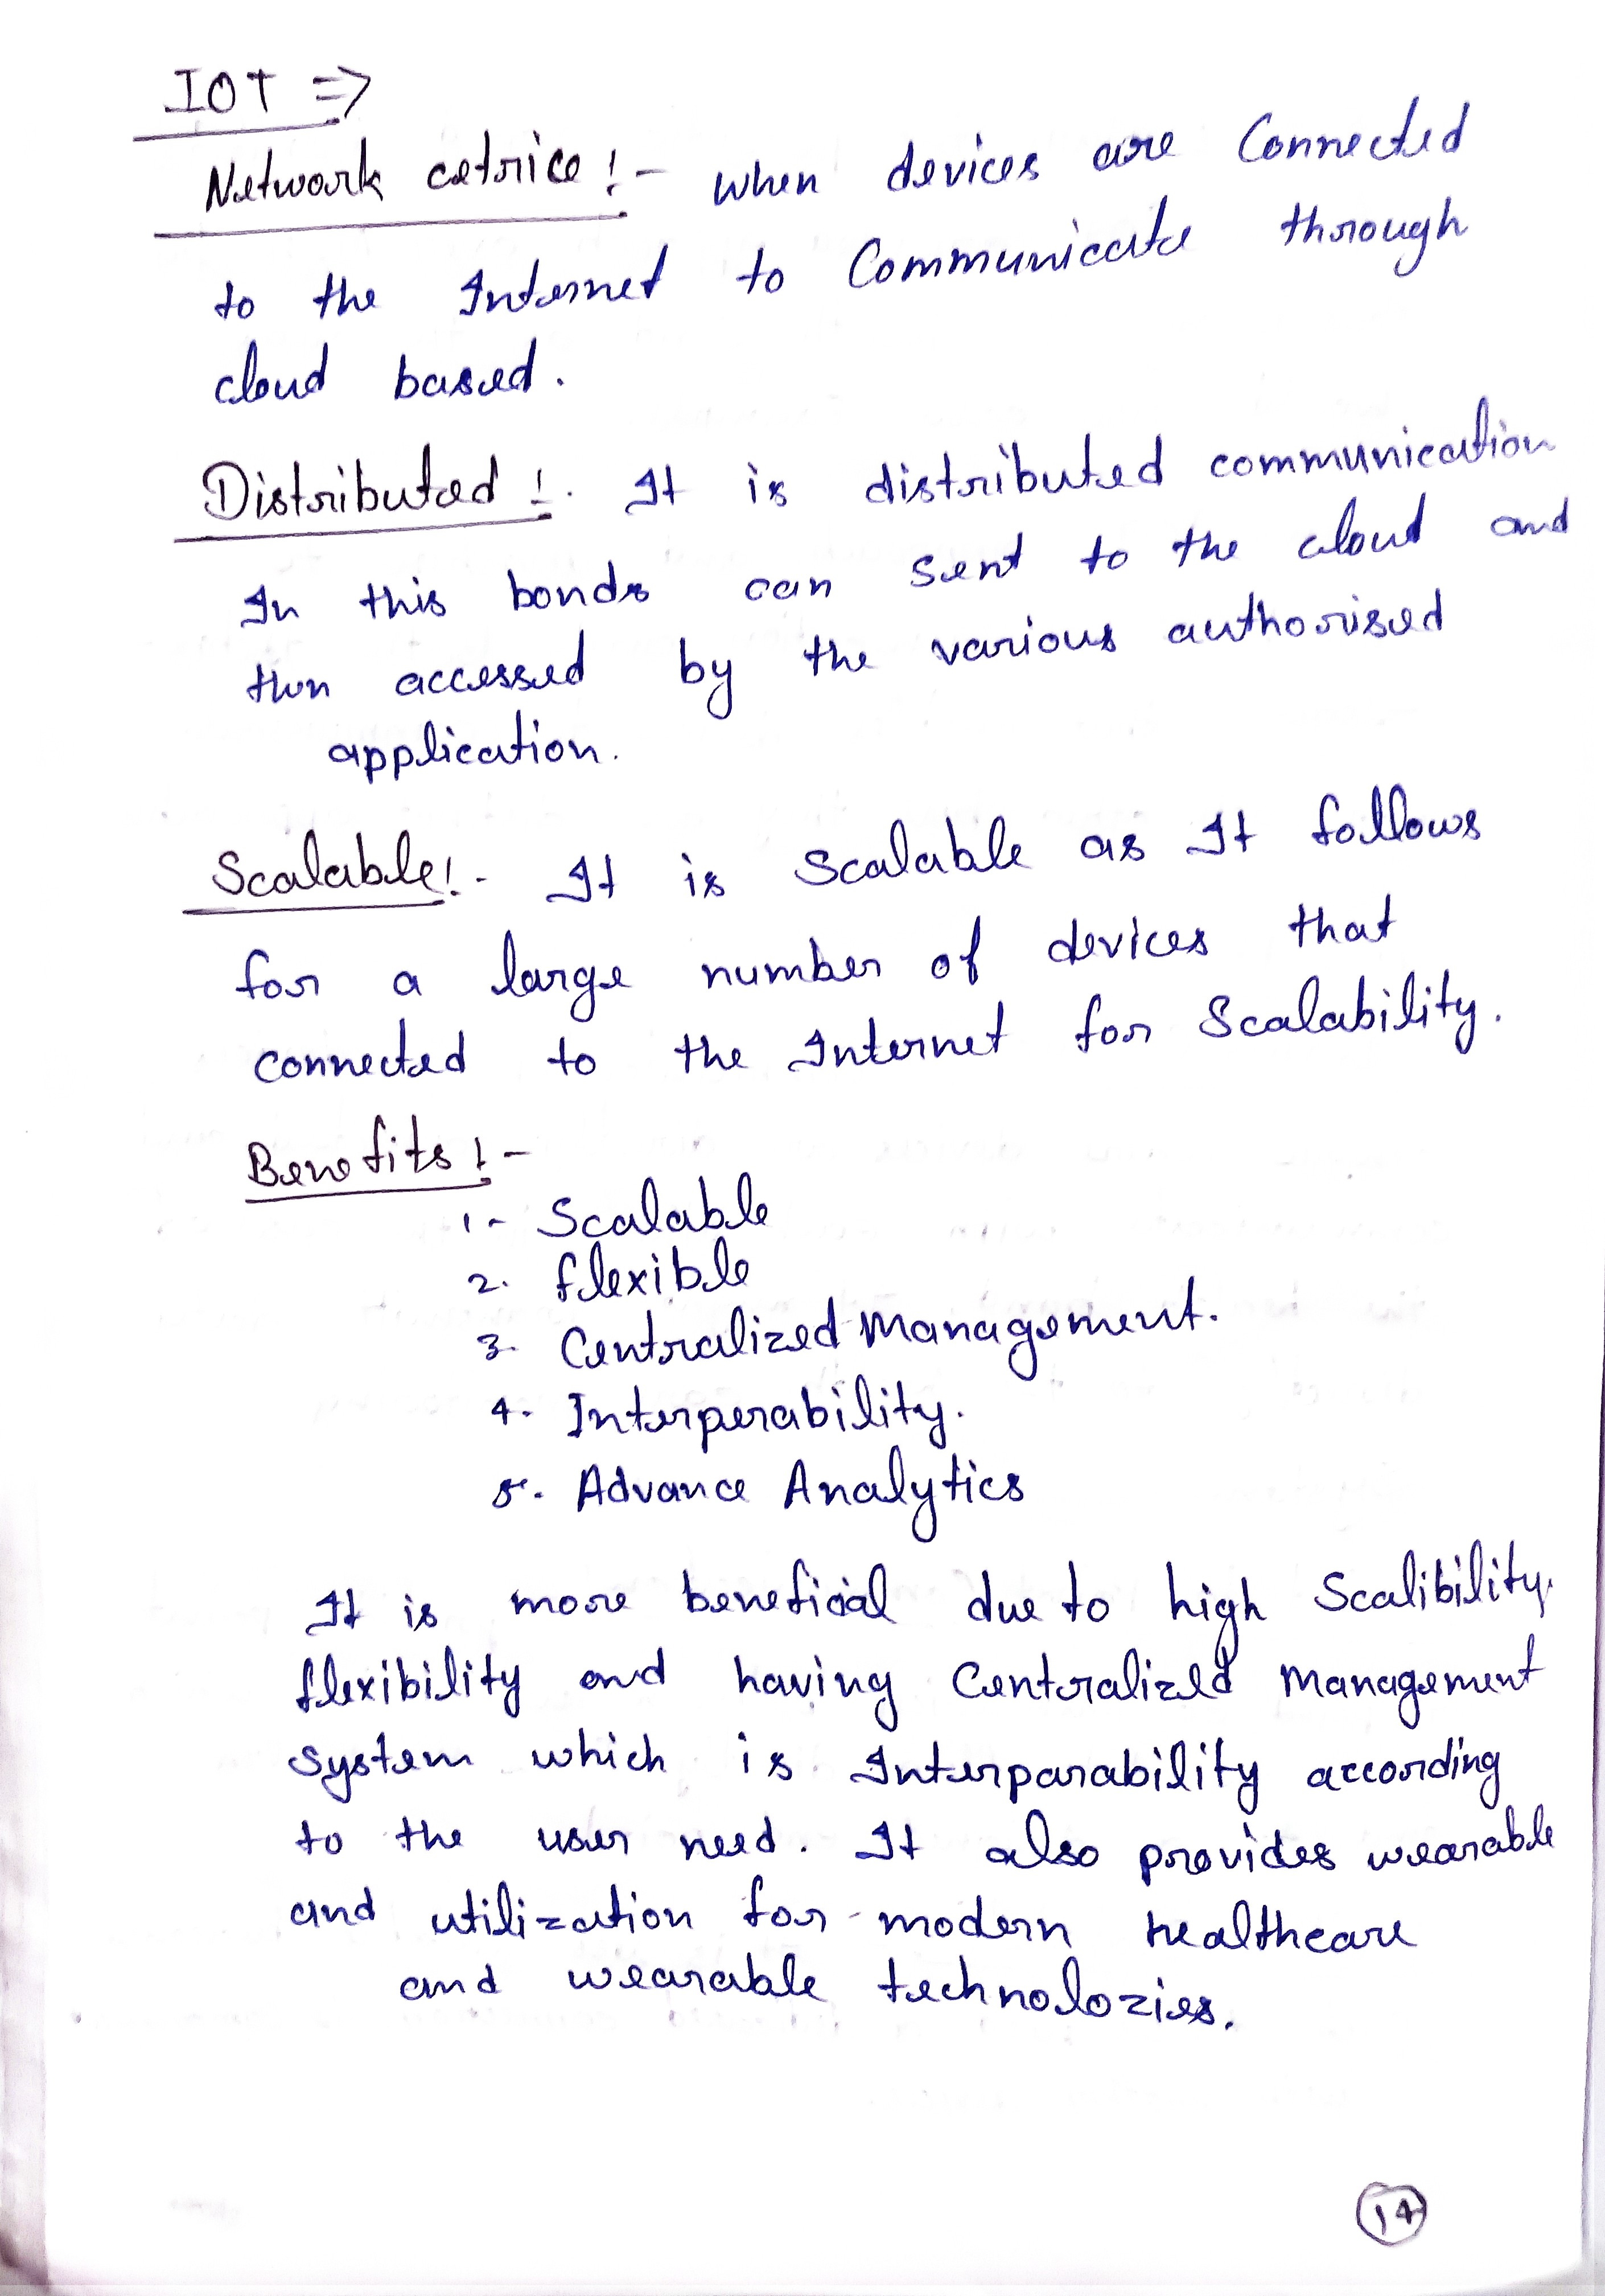 IOT =>
Network cetrice :- when devices are Connected
to the Internet to Communicate through
cloud based.
Distributed :- It is distributed communication
In this bonds can sent to the cloud and
then accessed by the various authorised
application.
Scalable :- It is Scalable as It follows
for a large number of devices that
connected to the Internet for Scalability.
Benefits :-
1- Scalable
2. flexible
3. Centralized Management.
4. Interperability.
5. Advance Analytics
It is more beneficial due to high Scalibility.
flexibility and having Centralized Management
System which is Interparability according
to the user need. It also provides wearable
and utilization for modern healthcare
and wearable technolozies.
14